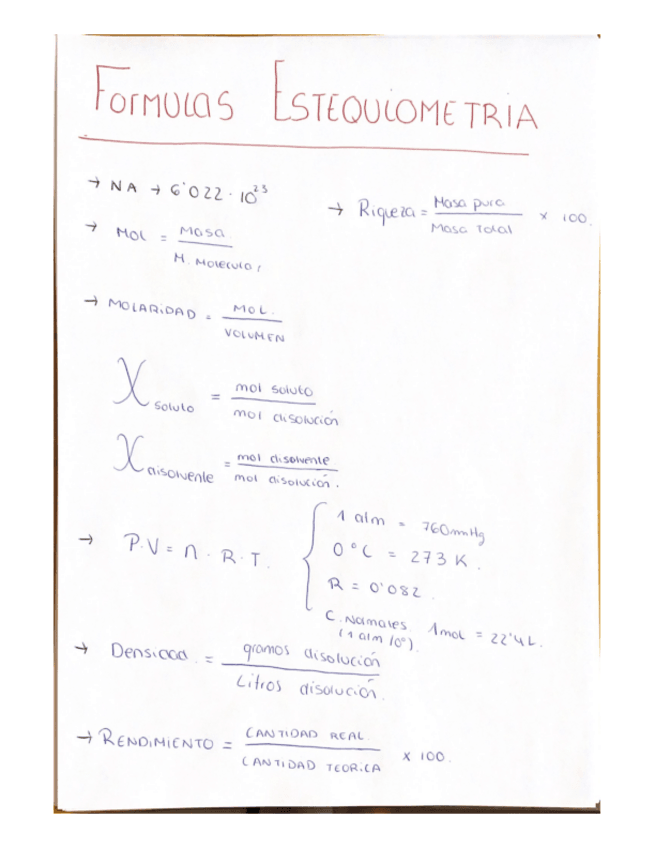 FORMULAS ESTEQUIOMETRIA
→ NA → 6'022 · 10²³
→ Riqueza = Masa pura / Masa Total × 100.
→ MOL = Masa / M. Molecular
→ MOLARIDAD = MOL. / VOLUMEN
X soluto = mol soluto / mol disolución
X disolvente = mol disolvente / mol disolución.
→ P.V = n . R . T.
1 atm = 760mmHg
0°C = 273 K.
R = 0'082.
C. Normales (1 atm /0°). 1mol = 22'4 L.
→ Densidad = gramos disolución / Litros disolución.
→ RENDIMIENTO = CANTIDAD REAL. / CANTIDAD TEORICA × 100.